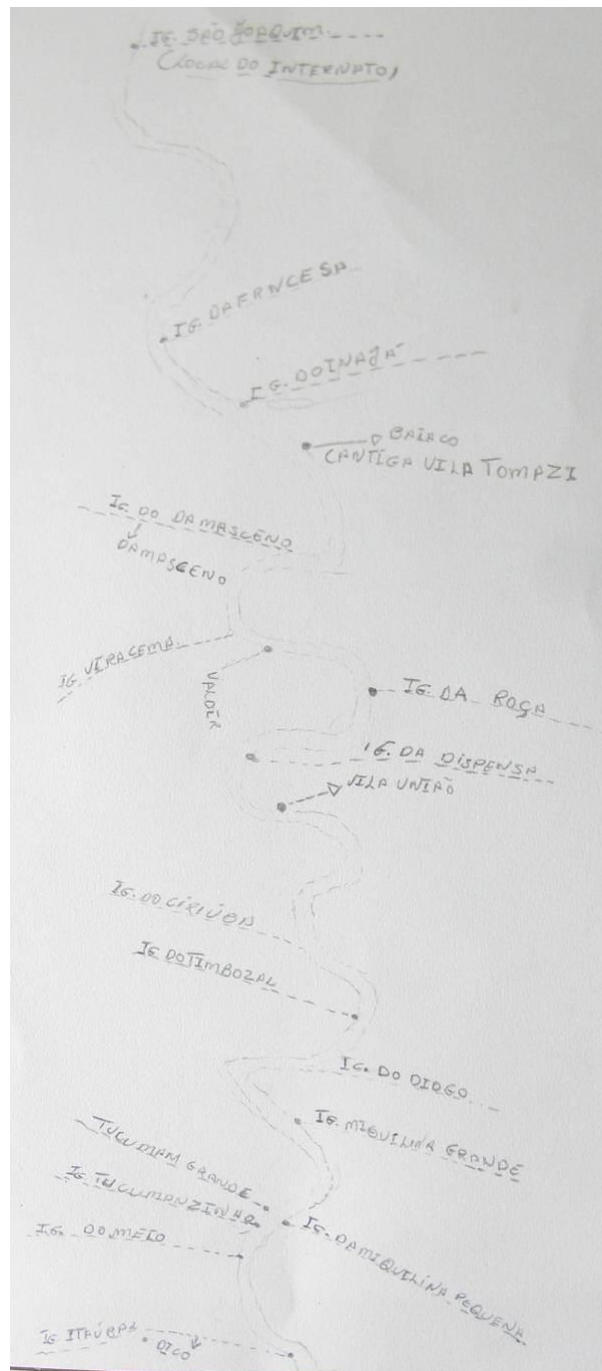 IG. SÃO JOAQUIM
(LOCAL DO INTERNATO)
IG. DA FRNCESA
IG. DO INAJÁ
BAIACO
CANTIGA VILA TOMAZI
IG. DO DAMASCENO
DAMASCENO
IG. VIRACEMA
VALDIR
IG. DA ROÇA
IG. DA DISPENSA
VILA UNIÃO
IG. DO CIRIÚBA
IG. DO TIMBOZAL
IG. DO DIOGO
IG. MIQUILINA GRANDE
TUCUMAM GRANDE
IG. TUCUMANZINHO
IG. DAMIQUILINA PEQUENA
IG. DO MEIO
IG ITAÚBAL
DICO